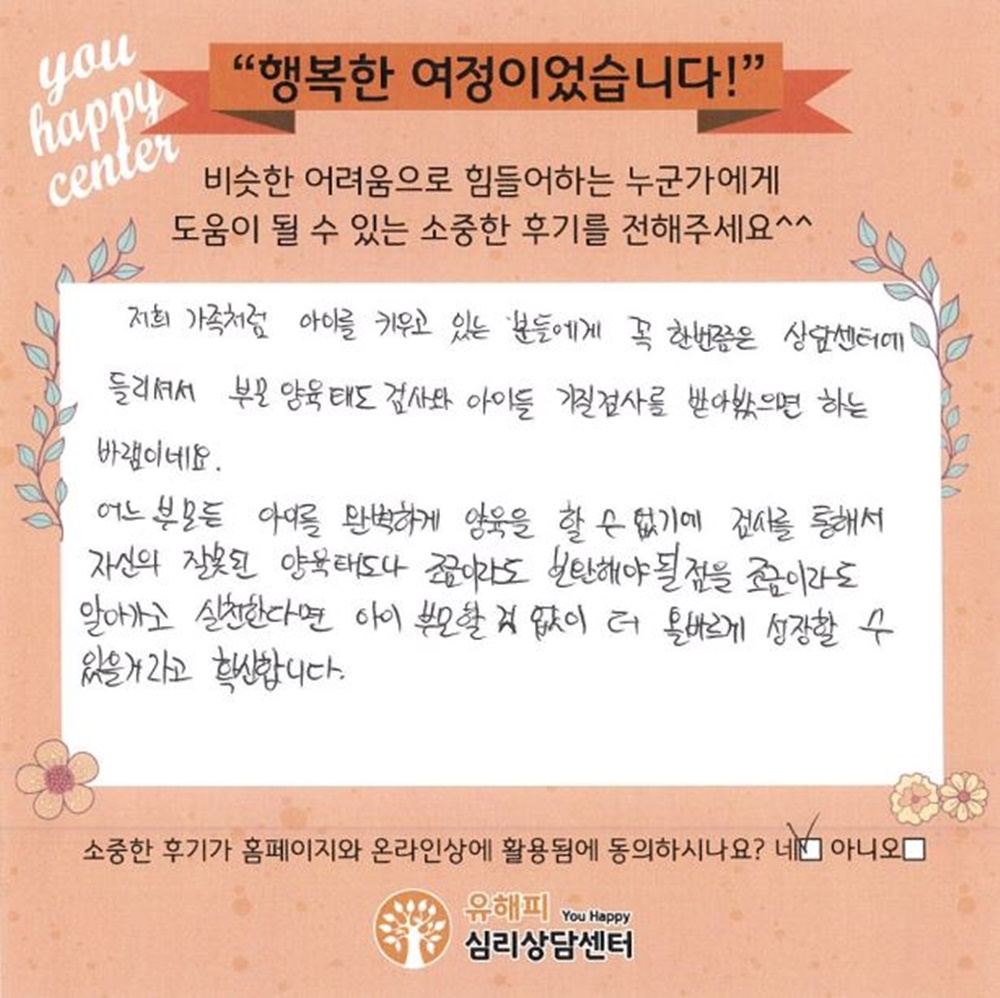 you
happy
center
“행복한 여정이었습니다!”
비슷한 어려움으로 힘들어하는 누군가에게
도움이 될 수 있는 소중한 후기를 전해주세요^^
저희 가족처럼 아이를 키우고 있는 분들에게 꼭 한번쯤은 상담센터에
들리셔서 부모 양육태도 검사와 아이들 기질검사를 받아봤으면 하는
바램이네요.
어느 부모든 아이를 완벽하게 양육을 할 수 없기에 검사를 통해서
자신의 잘못된 양육태도나 조금이라도 보탄해야 될 점을 조금이라도
알아가고 실천한다면 아이 부모할 것 없이 더 올바르게 성장할 수
있을거라고 확신합니다.
소중한 후기가 홈페이지와 온라인상에 활용됨에 동의하시나요? 네 아니오
유해피 You Happy
심리상담센터